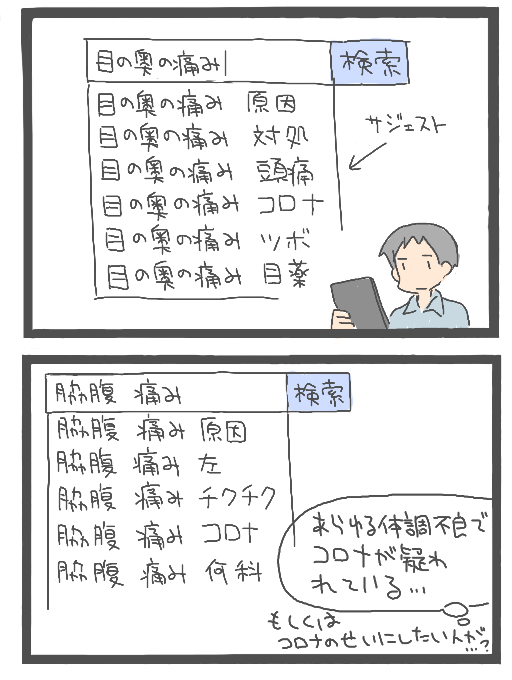 目の奥の痛み 検索
目の奥の痛み 原因
目の奥の痛み 対処
目の奥の痛み 頭痛
目の奥の痛み コロナ
目の奥の痛み ツボ
目の奥の痛み 目薬
サジェスト
脇腹 痛み 検索
脇腹 痛み 原因
脇腹 痛み 左
脇腹 痛み チクチク
脇腹 痛み コロナ
脇腹 痛み 何科
あらゆる体調不良で
コロナが疑わ
れている…
もしくは
コロナのせいにしたい人が…?